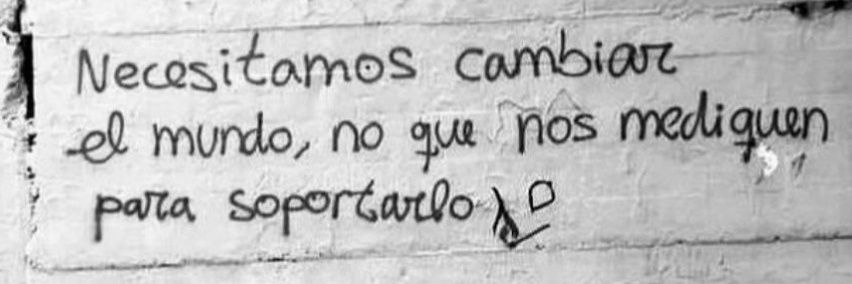 Necesitamos cambiar
el mundo, no que nos mediquen
para soportarlo